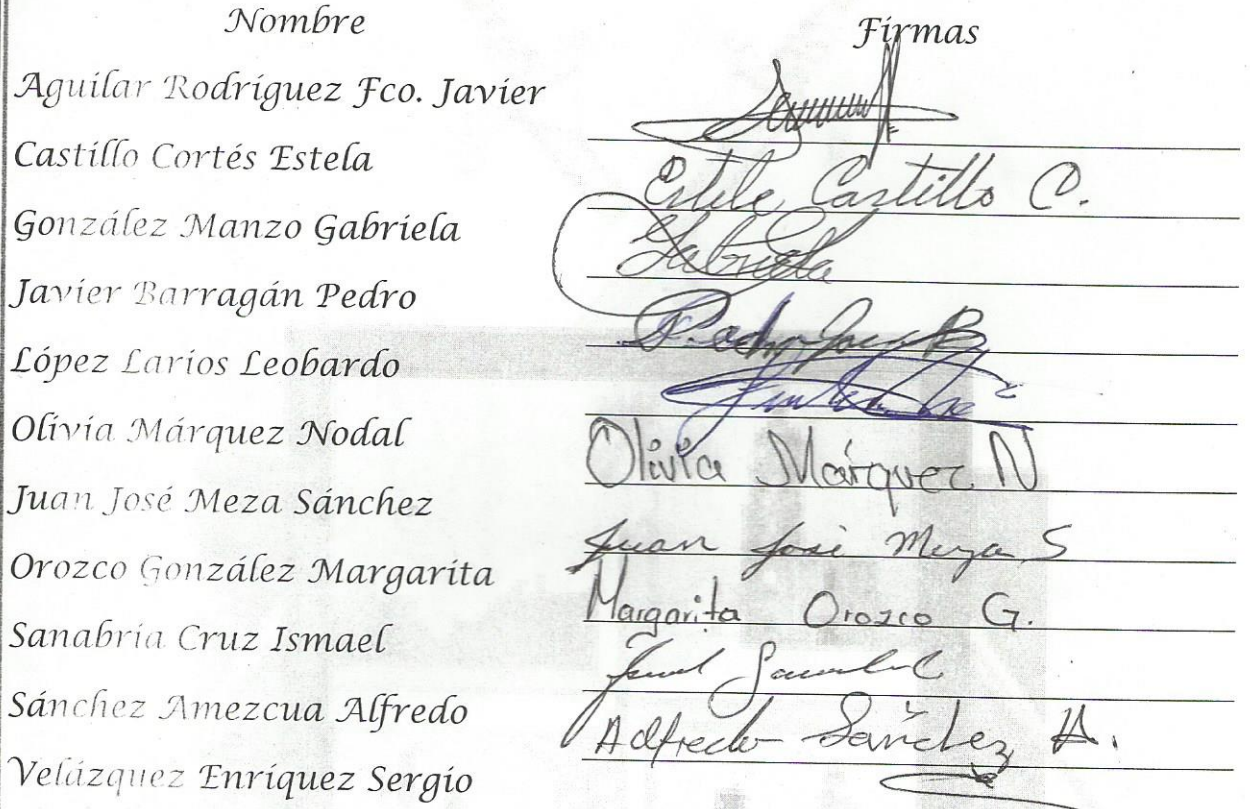 Nombre Firmas
Aguilar Rodríguez Fco. Javier
Castillo Cortés Estela Estela Castillo C.
González Manzo Gabriela Gabriela
Javier Barragán Pedro Pedro Javier B
López Larios Leobardo
Olivia Márquez Nodal Olivia Márquez N
Juan José Meza Sánchez Juan José Meza S
Orozco González Margarita Margarita Orozco G.
Sanabria Cruz Ismael
Sánchez Amezcua Alfredo Alfredo Sánchez A.
Velázquez Enríquez Sergio